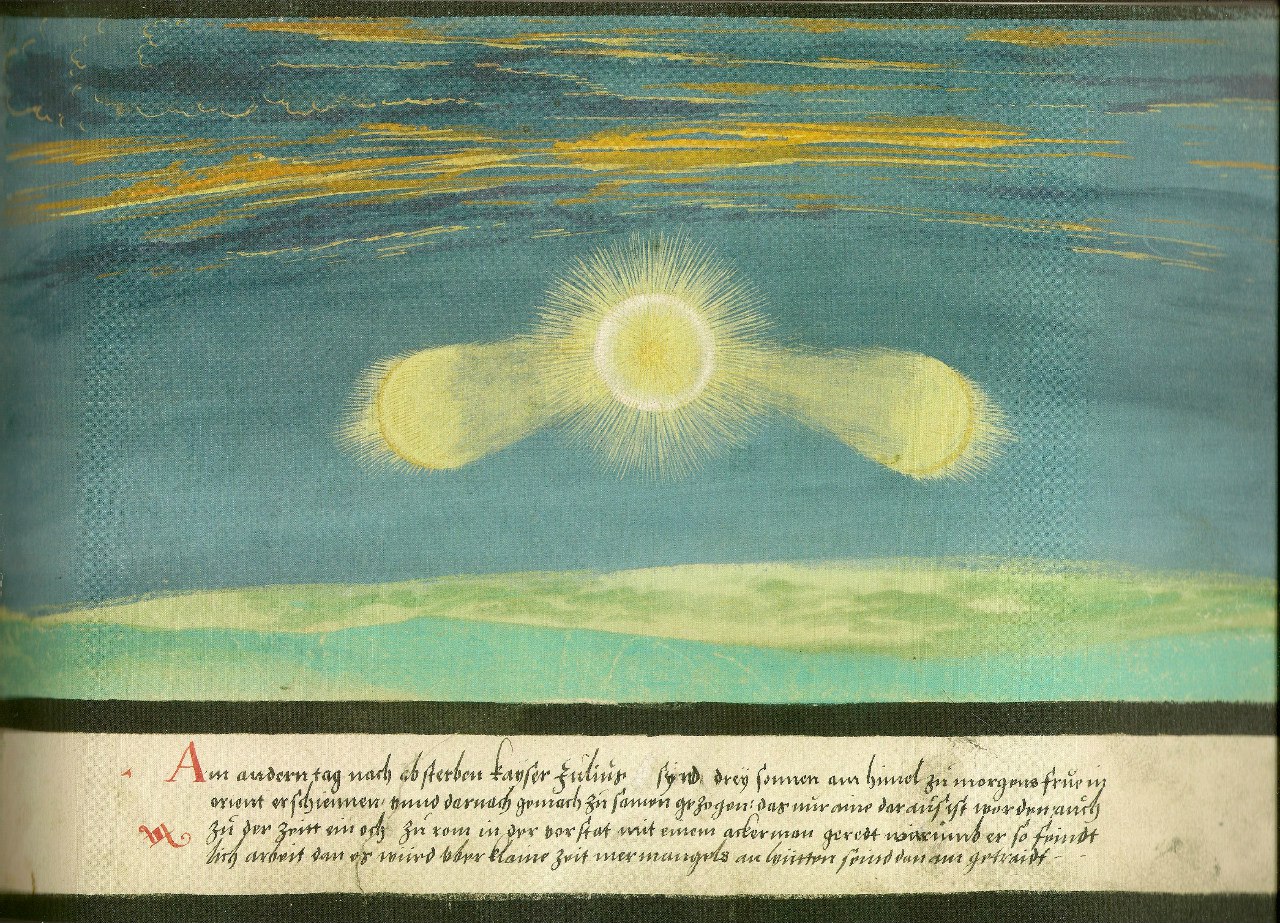 Am andern tag nach absterben kayser Julius synd drey sonnen am himel zu morgens frue in
orient erschiennen vnnd darnach gemach zu samen gezogen: das nur aine daraus ist worden, auch
zu der zeitt ein ochs zu rom in der vorstat mit einem ackerman geredt warumb er so feindt
lich arbeit dan es würd vber klaine zeit mer mangels an leütten seind dan am getraidt